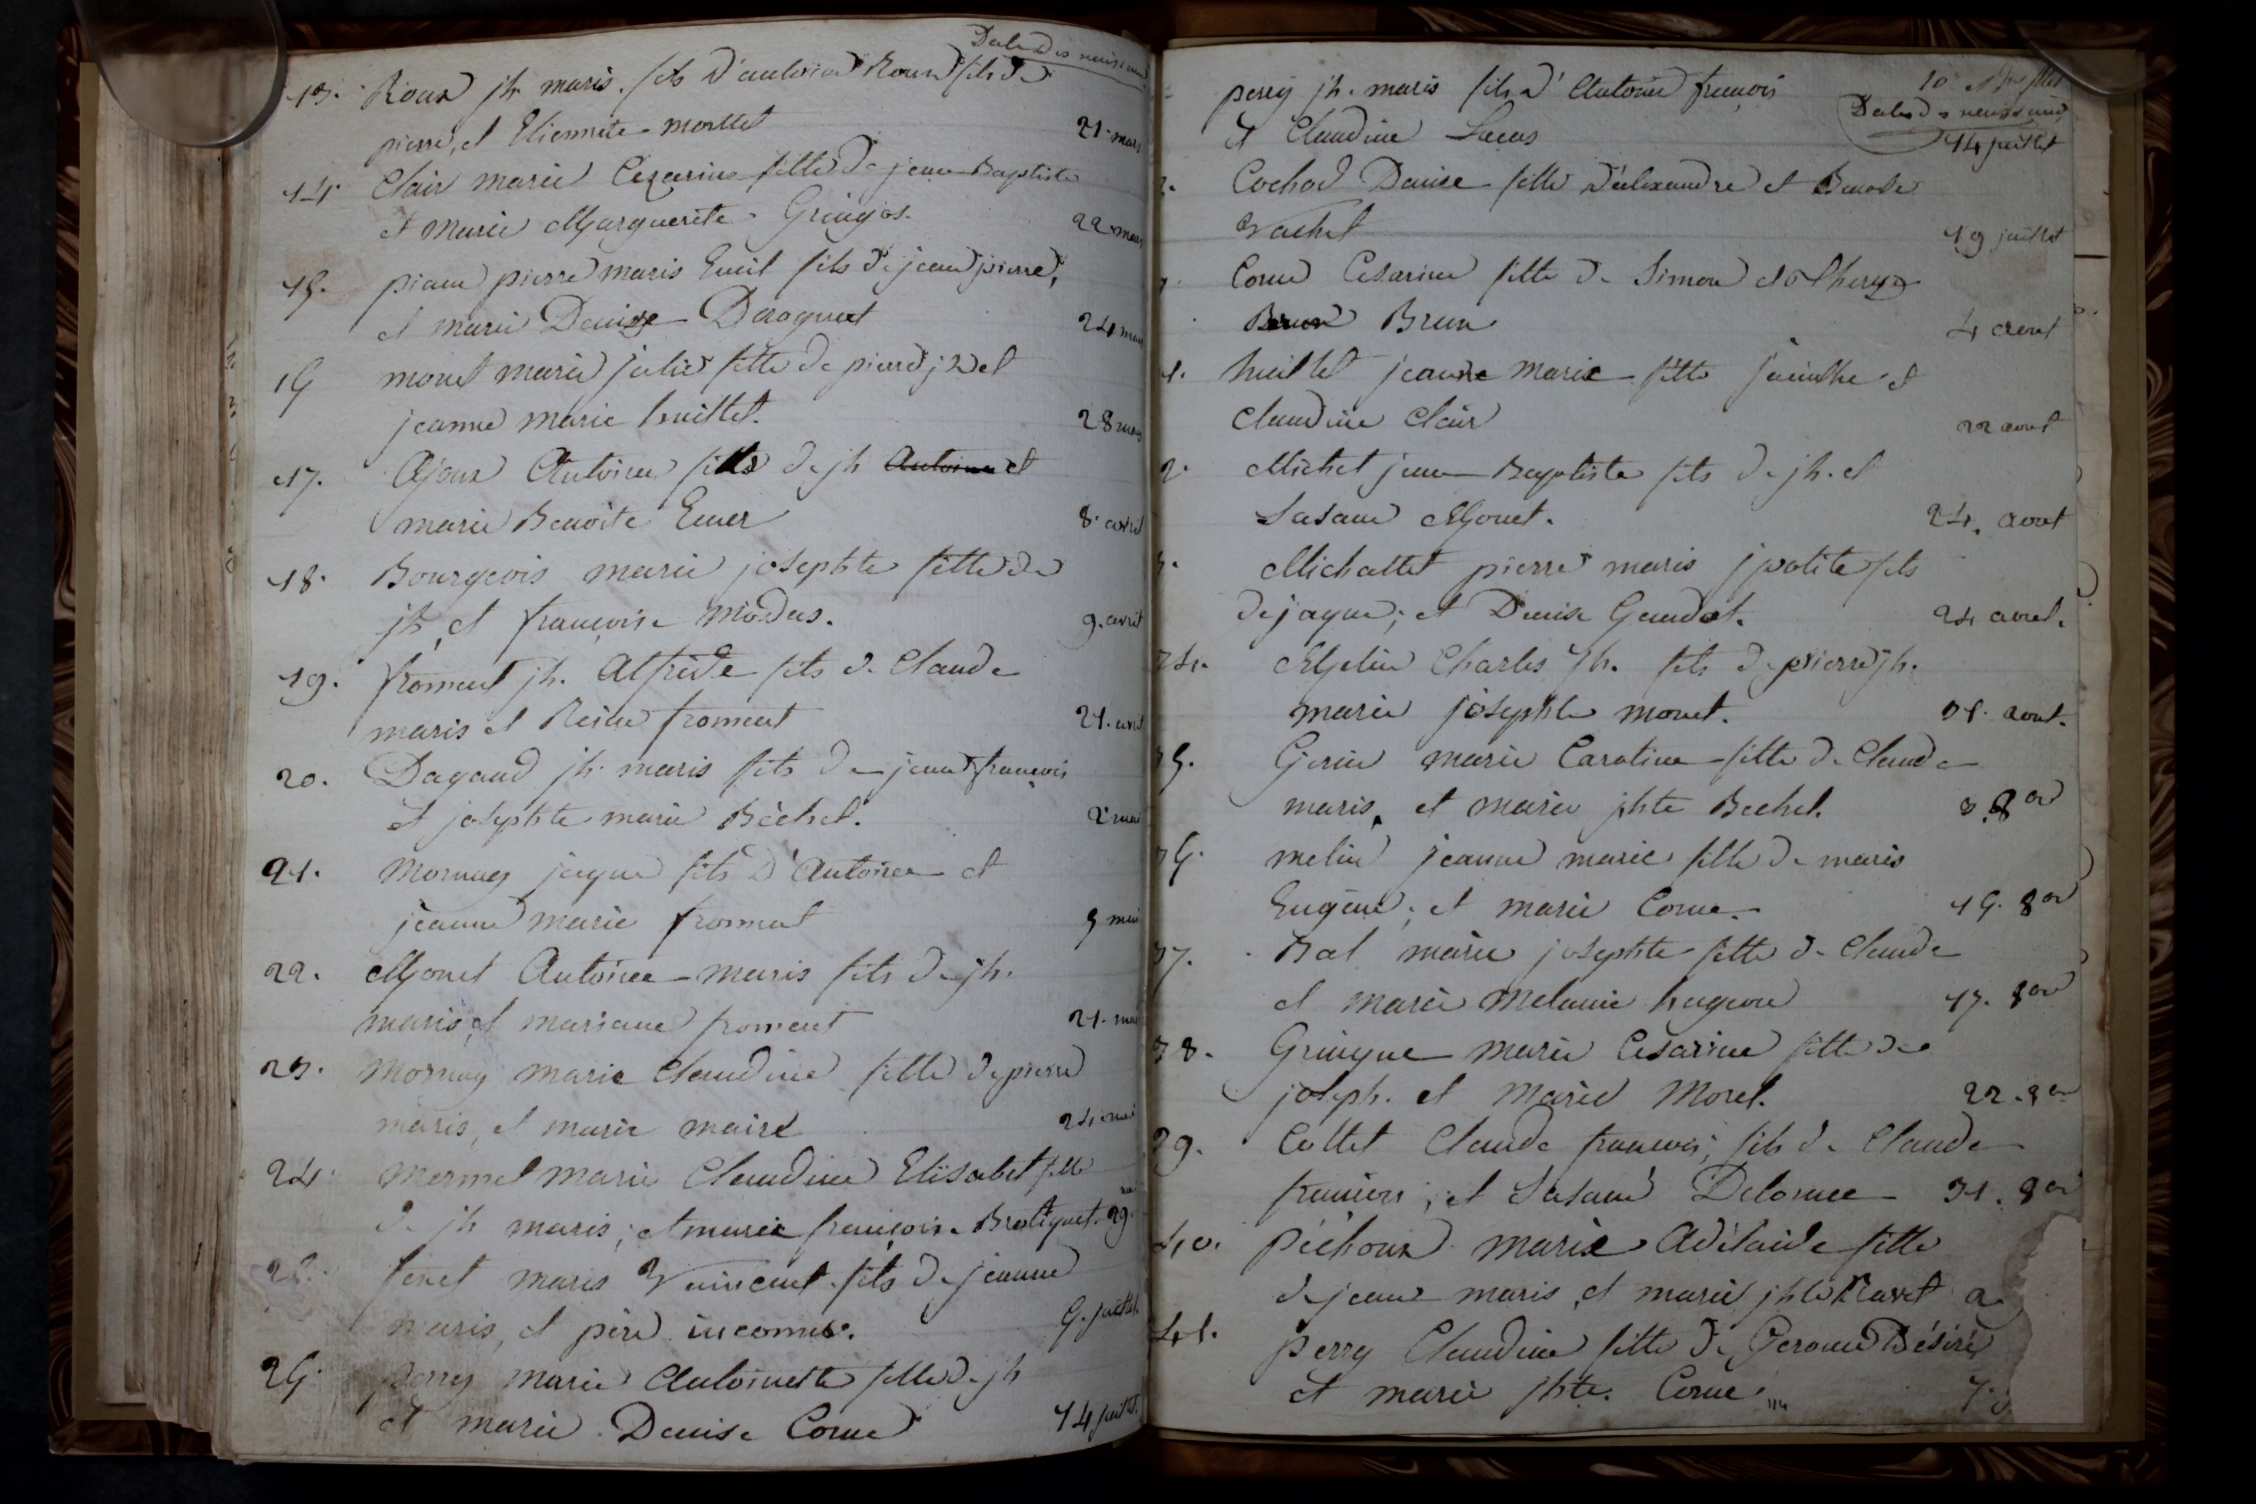 Dates des naissances
13. Roux jh. maris. fils d'antoine Roux fils de
pierre, et Etiennete morellet 21. mars
14 Clair marie Cezarine fille de jean Baptiste
et marie Marguerite Gringos. 22 mars
15. pierre maris Emil fils de jean pierre,
et marie Denise Daroguet 24 mars
16 monet marie julie fille de pierre jh et
jeanne marie huillet. 28 mars
17. Ajoux Antoine fils de jh Antoine et
marie Benoite Emer 8. avril
18. Bourgeois marie josephte fille de
jh, et françoise modas. 9. avril
19. froment jh. Alfrede fils de Claude
maris et Reine froment 21. avril
20. Dagaud jh. maris fils de jean françois
et josephte marie Bechet. 2 mai
21. Mornay jaque fils d'Antoine et
jeanne marie froment 5 mai
22. Monet Antoine maris fils de jh.
maris, et mariane froment 21. mai
23. Mornay marie Claudine fille de pierre
maris, et marie maire 24 mai
24. Mermet marie Claudine Elisabet fille
de jh maris; et marie françoise Brotiquet. 29.
25. feret maris Vaincent fils de jeanne
maris, et père inconus. 6. juillet
26. perrey marie Antoinette fille de jh
et marie Denise Corne 14 juillet
perrey jh. maris fils d'Antoine françois
et Claudine Lucas
10 juillet
Dates des naissances
14 juillet
Cochod Denise fille d'alexandre et Benoite
Vachet 19 juillet
Corne Cesarine fille de Simon et
Brun Brun 4 aout
huillet jeanne marie fille jacinthe et
Claudine Clair 22 aout
Michet jean Baptiste fils de jh. et
Susane Monet. 24. aout
Michallet pierre maris jpolite fils
de jaque; et Denise Gaudet. 24 aout.
34. Melin Charles jh. fils de pierre jh.
marie josephte monet. 31. aout.
35. Gerin marie Caroline fille de Claude
maris, et marie jhte Bechet. 3. 8bre
36. melin jeanne marie fille de maris
Eugène; et marie Corne. 16. 8bre
37. Bal marie josephte fille de Claude
et marie Melanie hugon 17. 8bre
38. Gringne marie Cesarine fille de
joseph. et marie Morel. 22. 8bre
39. Collet Claude francois; fils de Claude
francois; et Susane Delorme 31. 8bre
40. péchoux marie Adélaide fille
de jean maris, et marie jhte Ravet
41. perrey Claudine fille de Gerome Désiré
et marie jhte. Corne